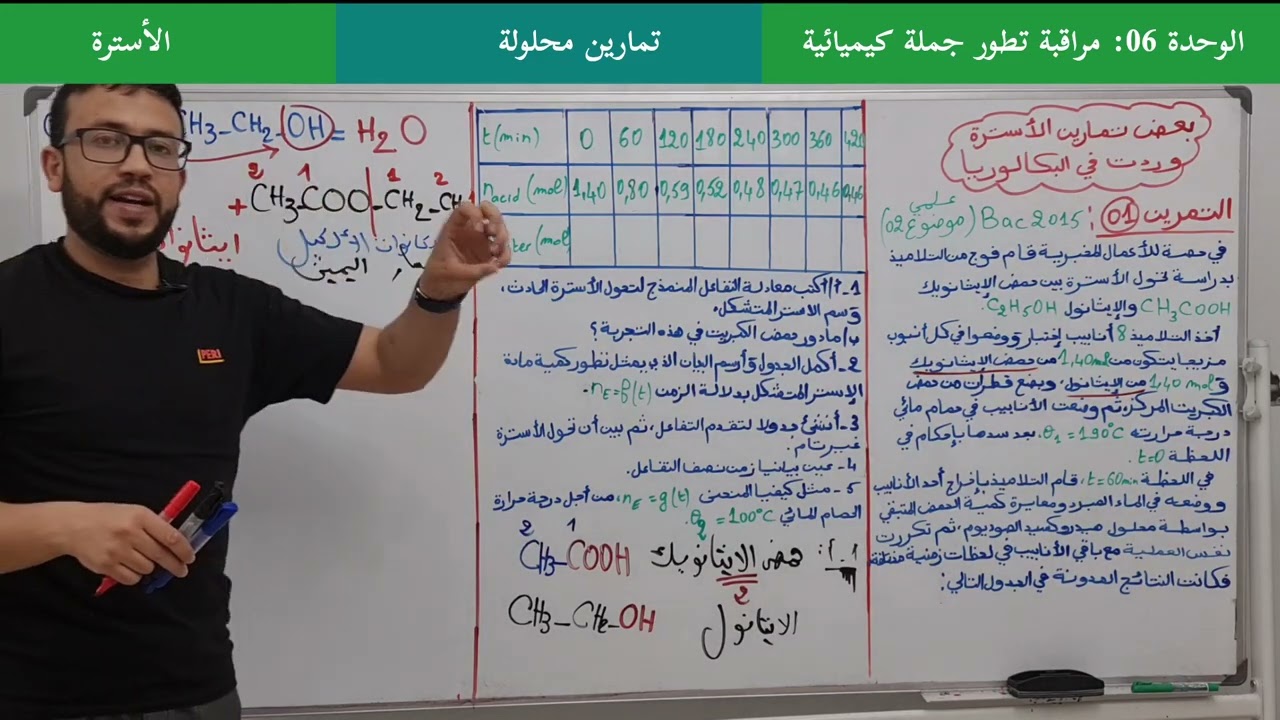 الوحدة 06: مراقبة تطور جملة كيميائية
تمارين محلولة
الأسترة
بعض تمارين الأسترة
وردت في البكالوريا
علمي
التمرين 01: Bac 2015 (موضوع 02)
في حصة للأعمال المخبرية قام فوج من التلاميذ
بدراسة تحول الأسترة بين حمض الإيثانويك
CH3COOH والإيثانول C2H5OH.
أخذ التلاميذ 8 أنابيب إختبار ووضعوا في كل أنبوب
مزيجا يتكون من 1,40 mol من حمض الإيثانويك
و 1,40 mol من الإيثانول، وبضع قطرات من حمض
الكبريت المركز، ثم وضعت الأنابيب في حمام مائي
درجة حرارته θ1 = 190°C، بعد سدها بإحكام في
اللحظة t=0.
في اللحظة t=60min، قام التلاميذ بإخراج أحد الأنابيب
ووضعه في الماء المبرد ومعايرة كمية الحمض المتبقي
بواسطة محلول هيدروكسيد الصوديوم، ثم تكررت
نفس العملية مع باقي الأنابيب في لحظات زمنية مختلفة
فكانت النتائج المدونة في الجدول التالي:
t(min) 0 60 120 180 240 300 360 420
nacid (mol) 1,40 0,80 0,59 0,52 0,48 0,47 0,46 0,46
ter (mol
1- أ/ أكتب معادلة التفاعل المنمذج لتحول الأسترة الحادث،
وسم الاستر المتشكل.
ب/ ما دور حمض الكبريت في هذه التجربة؟
2- أكمل الجدول وأرسم البيان الذي يمثل تطور كمية مادة
الإستر المتشكل بدلالة الزمن nE=f(t).
3- أنشئ جدولا لتقدم التفاعل، ثم بين أن تحول الأسترة
غير تام.
4- عين بيانيا زمن نصف التفاعل.
5- مثل كيفيا المنحنى nE = g(t)، من أجل درجة حرارة
الحمام المائي θ2 = 100°C.
1. أ: حمض الايثانويك CH3-COOH
2 1
2
الايثانول CH3-CH2-OH
H3-CH2-OH = H2O
2 1 1 2
+ CH3-COO-CH2-CH
اليمين
PERI